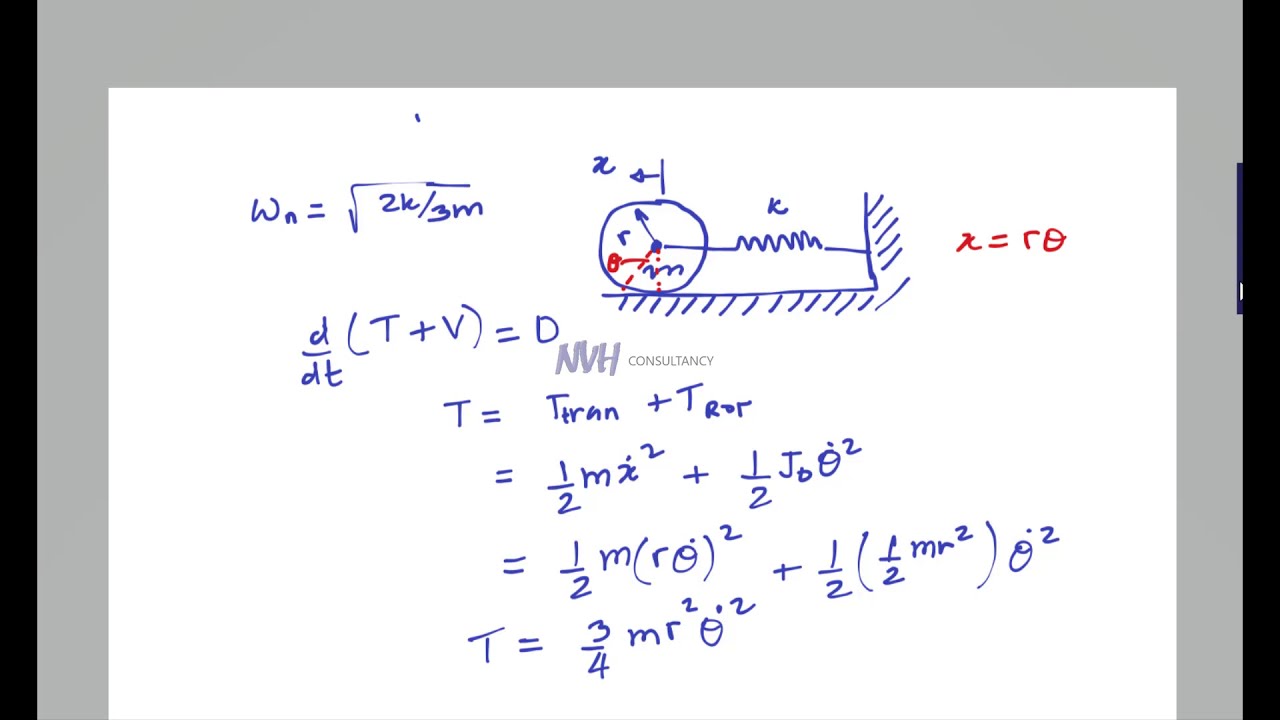 x
k
ωn = √2k/3m
r
x = rθ
θ
m
d/dt (T + V) = 0
NVH CONSULTANCY
T = Ttran + TRot
= 1/2 mẋ² + 1/2 J₀θ̇²
= 1/2 m(rθ̇)² + 1/2 (1/2 mr²) θ̇²
T = 3/4 mr²θ̇²